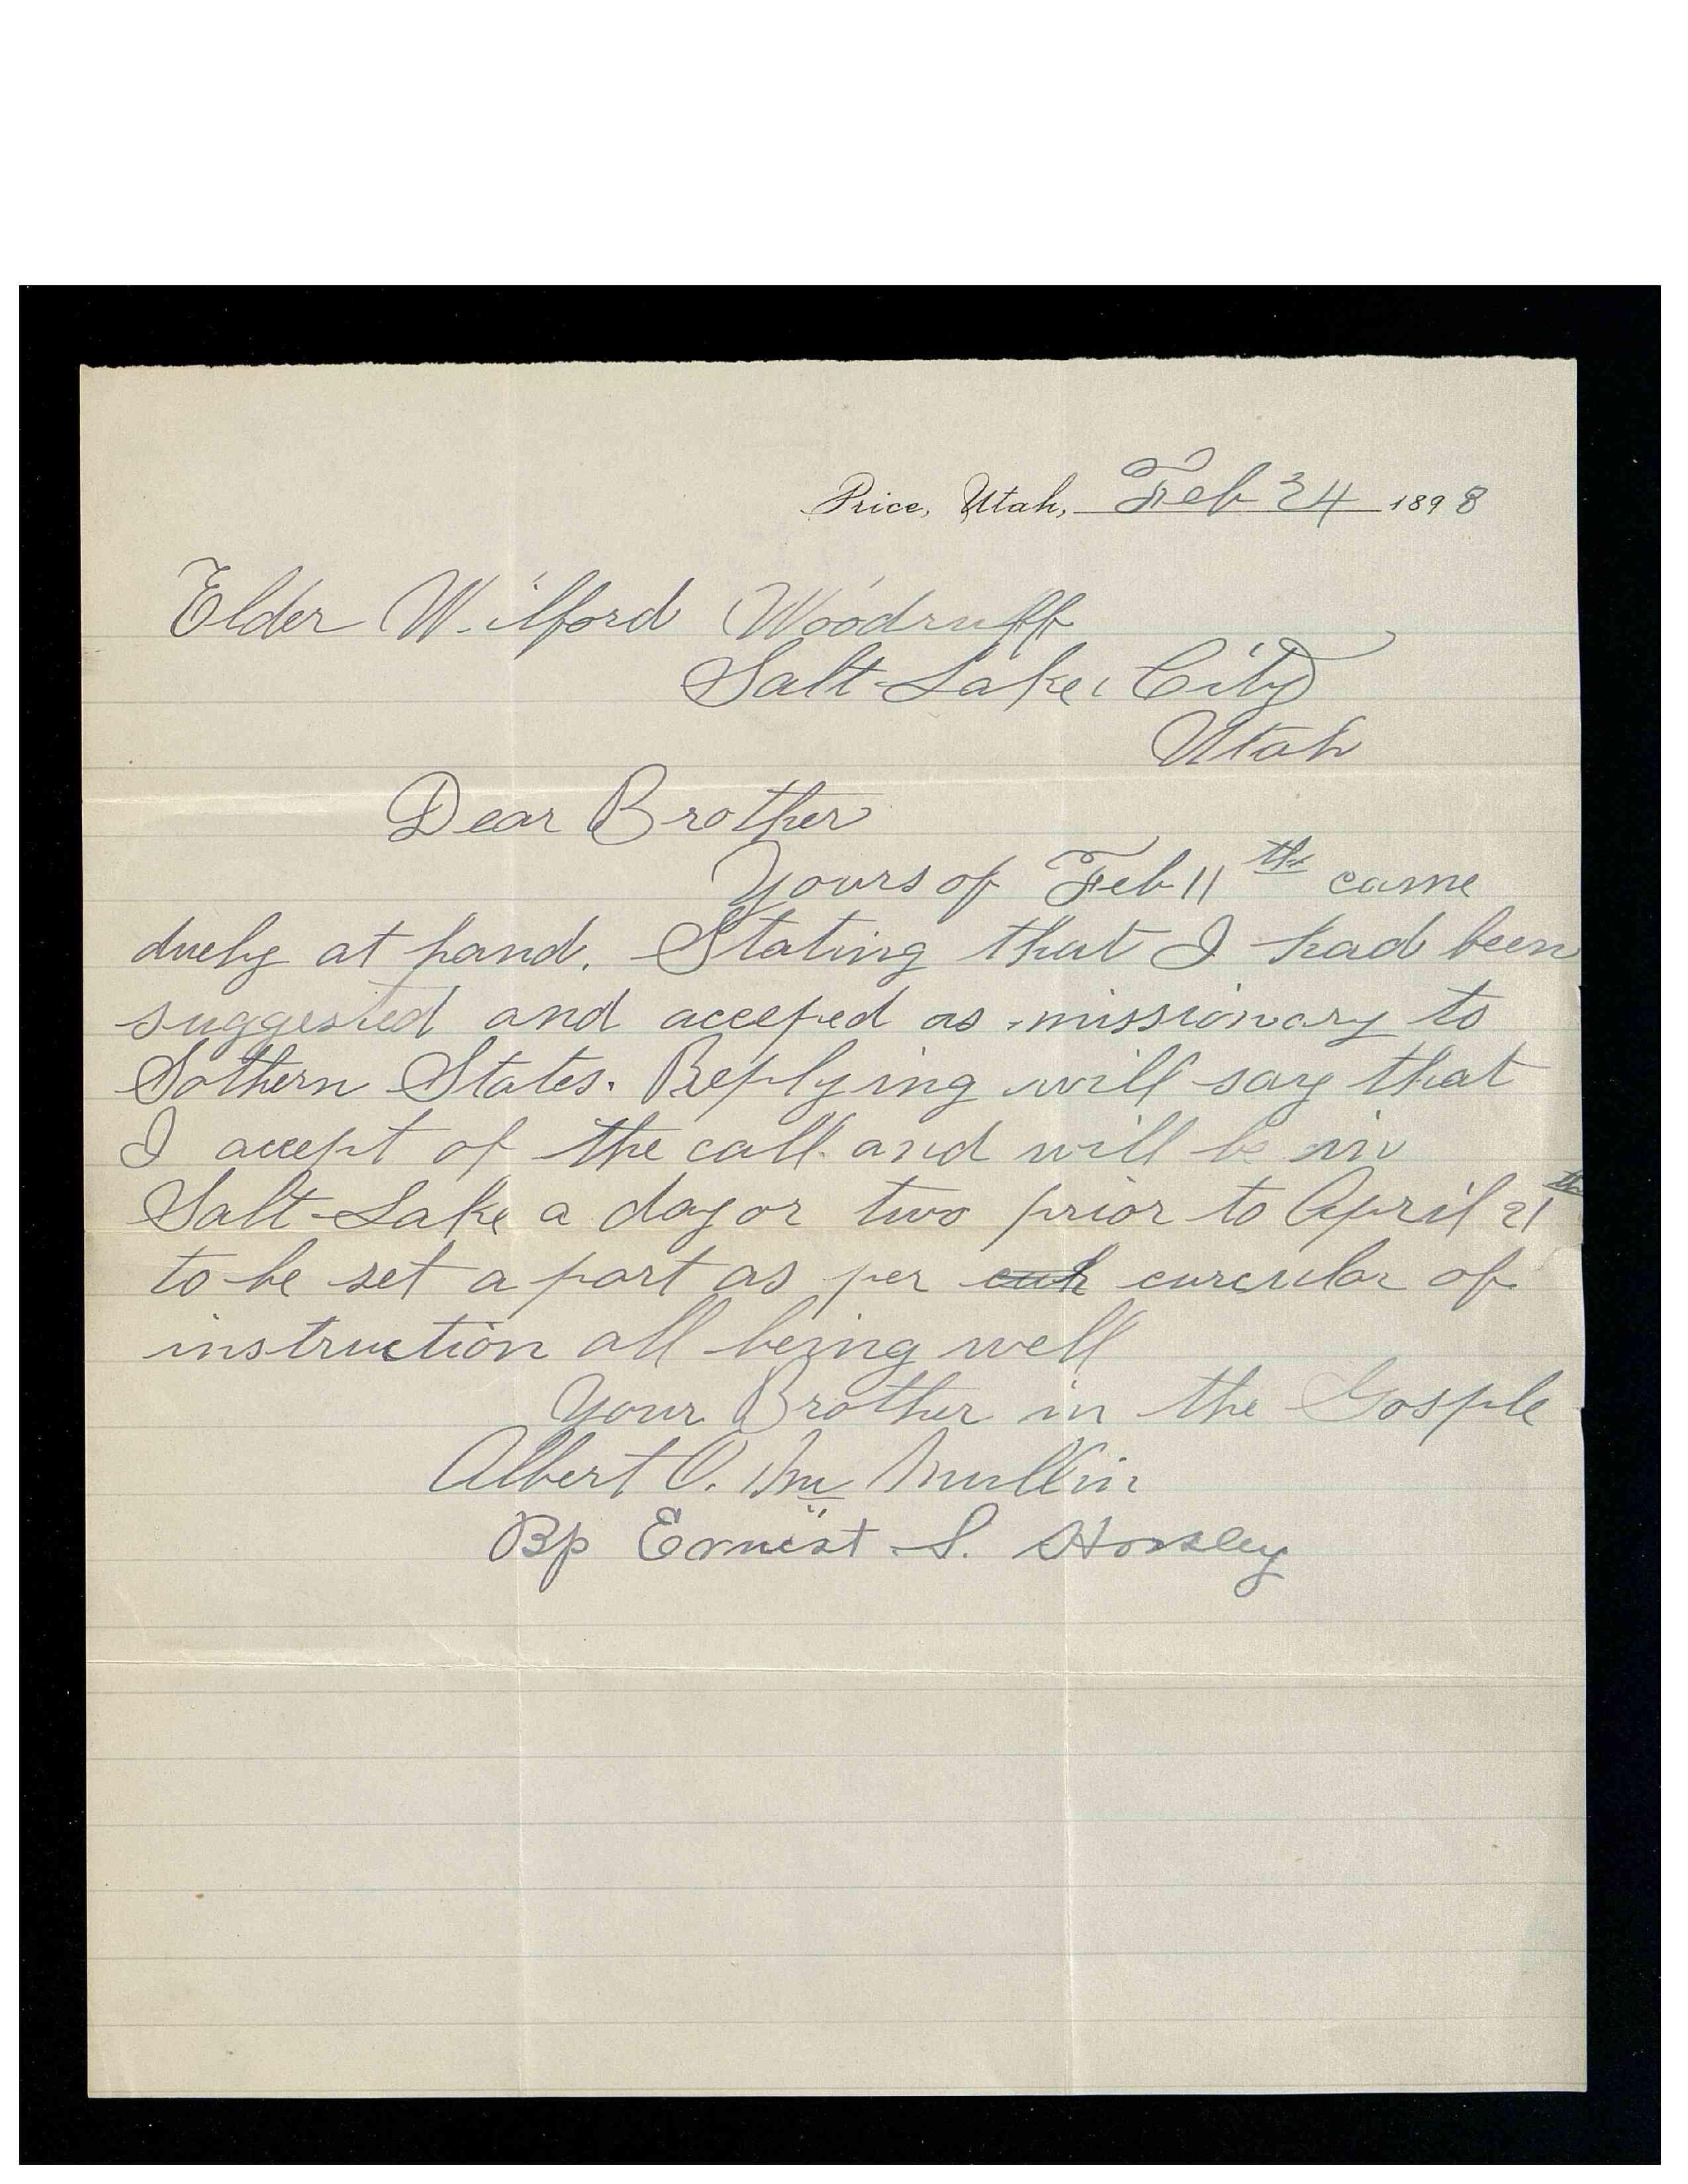 Price, Utah, Feb 24 1898
Elder Wilford Woodruff
Salt Lake City
Utah
Dear Brother
Yours of Feb 11th came
duely at hand. Stating that I had been
suggested and accepted as missionary to
Sothern States. Replying will say that
I accept of the call and will be in
Salt Lake a day or two prior to April 21th
to be set a part as per curcular of
instruction all being well
Your Brother in the Gosple
Albert O. Mc Mullin
Bp Ernest S. Horsley